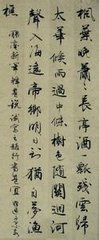 楓葉晚蕭〻長亭酒一瓢残雲歸
太華疎雨過中條樹色隨關迥河
聲入海遥帝鄉明日到猶自夢漁
樵